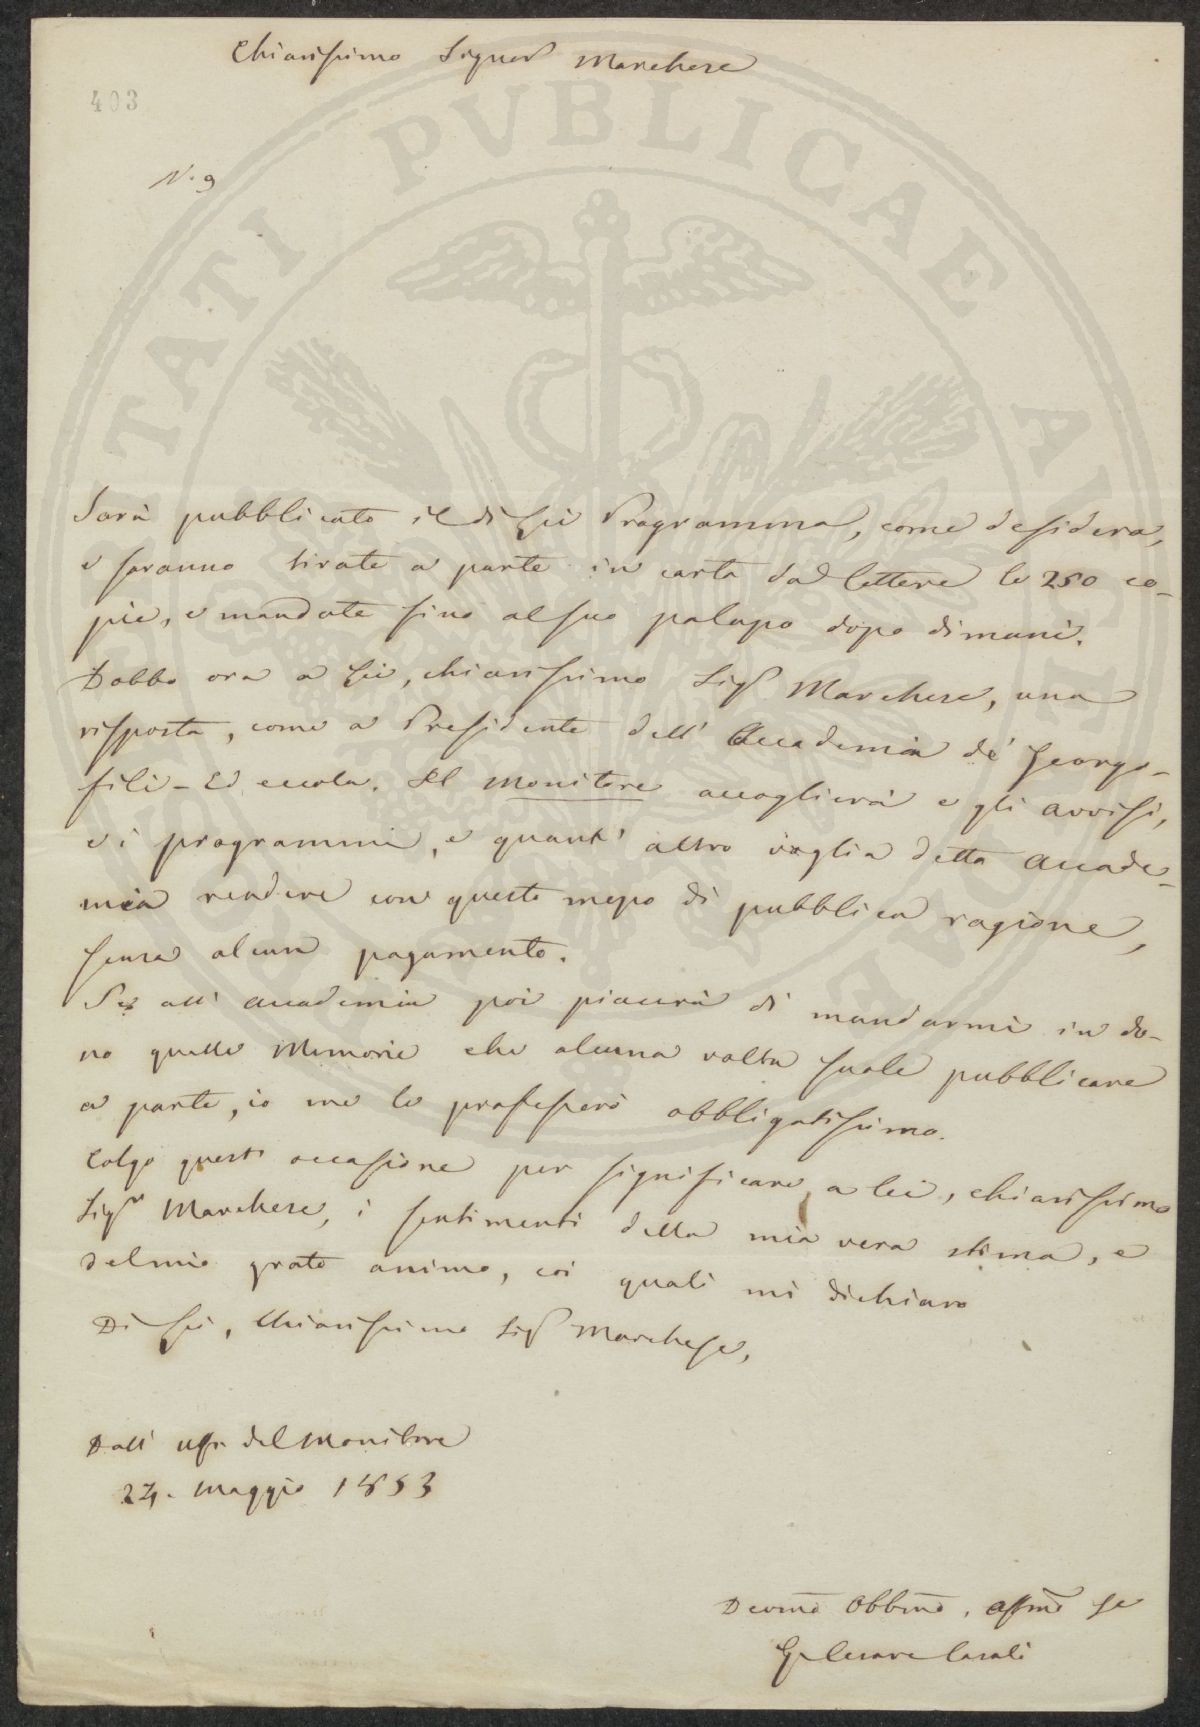 Chiarissimo Signor Marchese
403
N. 9
Sarà pubblicato il di Lei Programma, come desidera,
e saranno tirate a parte in carta da lettere le 250 co-
pie, e mandate fino al suo palazzo dopo dimani.
Debbo ora a Lei, chiarissimo Sigr Marchese, una
risposta, come a Presidente dell' Accademia de' Georgo-
fili - Ed eccola. Il Monitore accoglierà e gli avvisi,
e i programmi, e quant' altro voglia detta Accade-
mia rendere con questo mezzo di pubblica ragione,
senza alcun pagamento.
Se all' Accademia poi piacerà di mandarmi in do-
no quelle Memorie che alcuna volta suole pubblicare
a parte, io me le professerò obbligatissimo.
Colgo quest' occasione per significare a lei, chiarissimo
Sigr Marchese, i sentimenti della mia vera stima, e
del mio grato animo, coi quali mi dichiaro
Di Lei, Chiarissimo Sigr Marchese,
Dall' Uffo del Monitore
24. Maggio 1853
Devmo Obbmo, Affmo Se
Cesare Casali
PVBLICAE